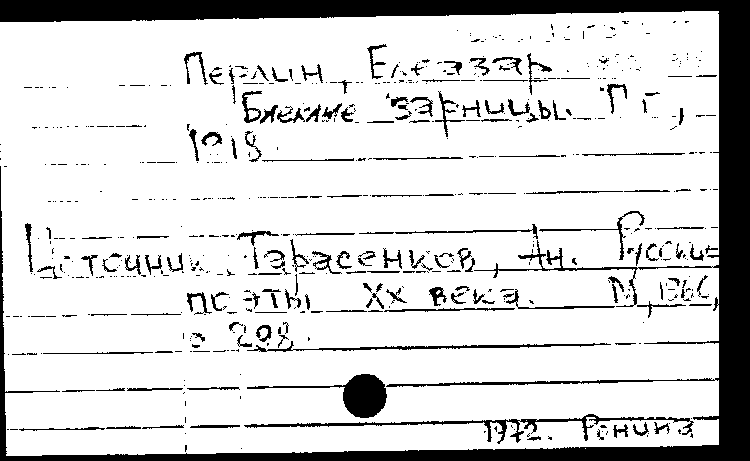 Перлин, Елеазар.
Бледные зарницы. Пг.,
1918.
Источник: Тарасенков, Ан. Русские
поэты XX века. М., 1966,
с 298.
1972. Ронина